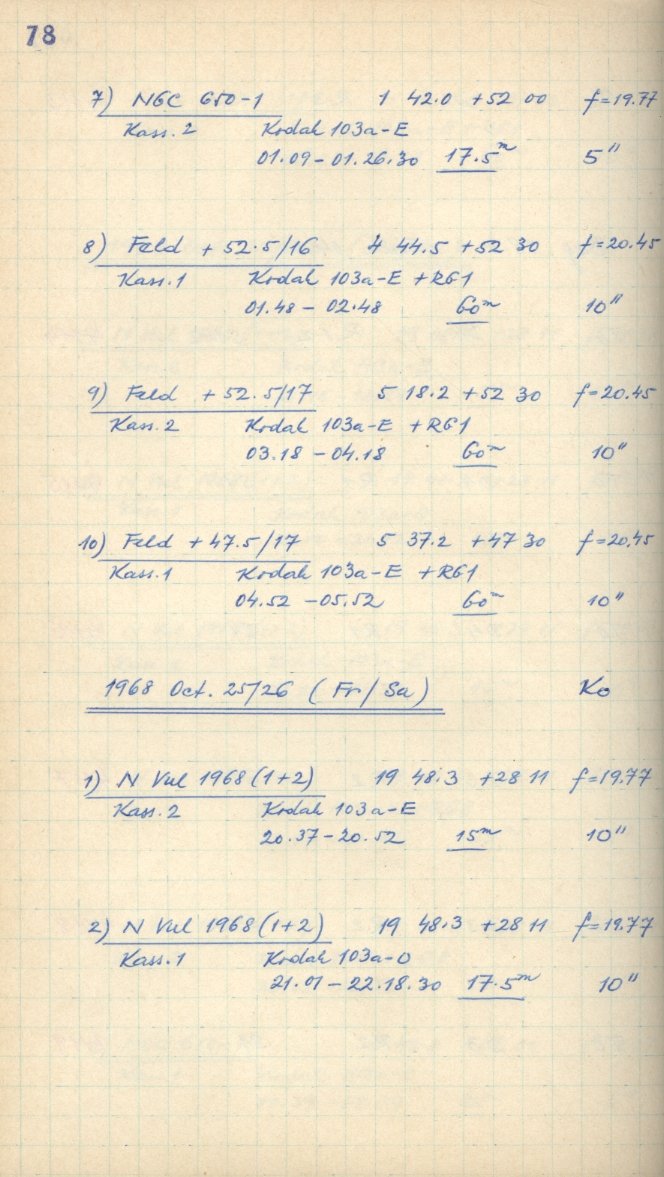 78
7) NGC 650-1 1 42.0 +52 00 f=19.77
Kass. 2 Kodak 103a-E
01.09 - 01.26.30 17.5m 5"
8) Feld + 52.5/16 4 44.5 +52 30 f=20.45
Kass. 1 Kodak 103a-E + RG1
01.48 - 02.48 60m 10"
9) Feld + 52.5/17 5 18.2 +52 30 f=20.45
Kass. 2 Kodak 103a-E + RG1
03.18 - 04.18 60m 10"
10) Feld + 47.5/17 5 37.2 +47 30 f=20.45
Kass. 1 Kodak 103a-E + RG1
04.52 - 05.52 60m 10"
1968 Oct. 25/26 (Fr/Sa) Ko
1) N Vul 1968 (1+2) 19 48.3 +28 11 f=19.77
Kass. 2 Kodak 103a-E
20.37 - 20.52 15m 10"
2) N Vul 1968 (1+2) 19 48.3 +28 11 f=19.77
Kass. 1 Kodak 103a-O
21.01 - 22.18.30 17.5m 10"